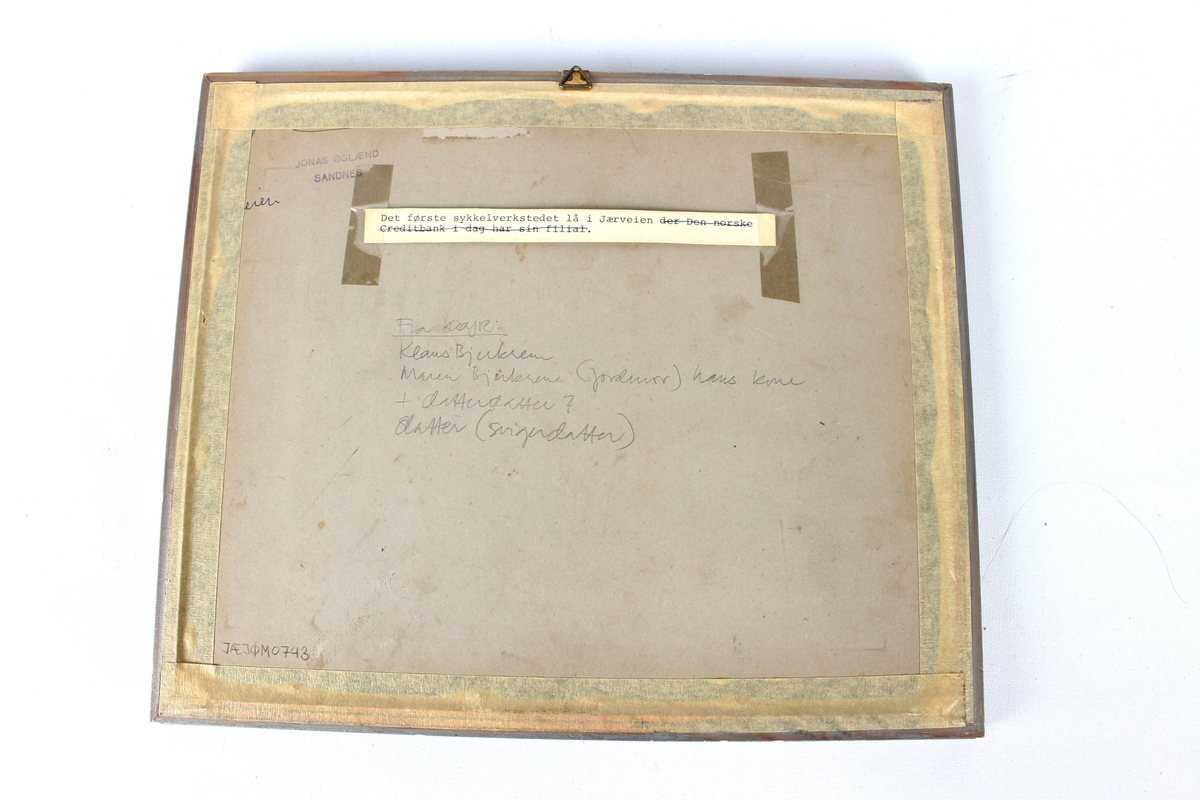 JONAS ØGLÆND
SANDNES
eien
Det første sykkelverkstedet lå i Jærveien der Den norske
Creditbank i dag har sin filial.
Fra høyre:
Klaus Bjerkrem
Maren Bjerkreme (Jordmor) hans kone
+ datterdatter?
datter (svigerdatter)
JÆJØM0743